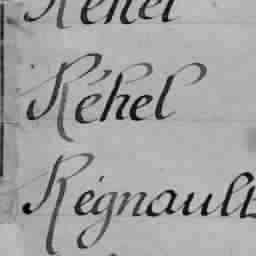 Réhel
Réhel
Régnault